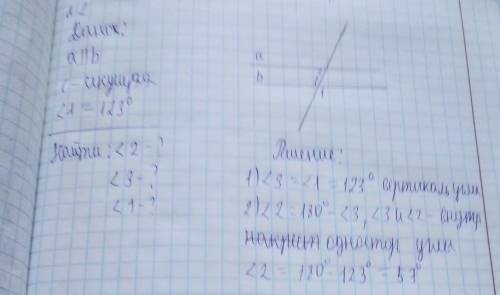 Дано:
a||b
c - секущая
∠1 = 123°
Найти: ∠2 - ?
∠3 - ?
∠1 - ?
a
b
1
Решение:
1) ∠3 = ∠1 = 123° вертикал. углы
2) ∠2 = 180° - ∠3, ∠3 и ∠2 - внутр
накрест одностор углы
∠2 = 180° - 123° = 57°